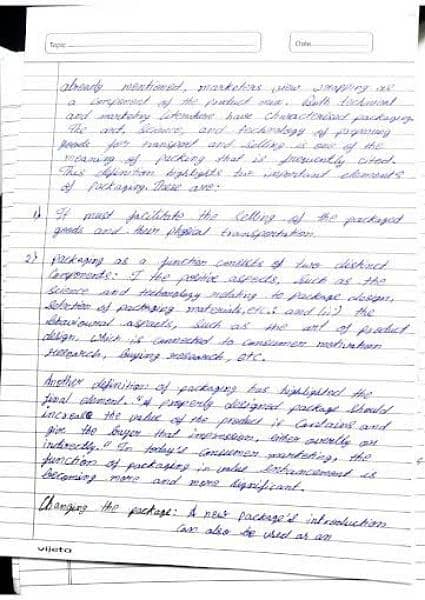 Topic
Date
already mentioned, marketers view wrapping as
a component of the product mix. Both technical
and marketing literature have characterised packaging.
The art, science, and technology of preparing
goods for transport and selling is one of the
meaning of packing that is frequently cited.
This definition highlights two important elements
of Packaging. These are:
1) It must facilitate the selling of the packaged
goods and their physical transportation.
2) packaging as a function consists of two distinct
Components: I the positive aspects, such as the
science and technology relating to package design,
selection of packaging materials, etc.; and (ii) the
behavioural aspects, such as the art of product
design, which is connected to consumer motivation
research, buying research, etc.
Another definition of packaging has highlighted the
final element. "A properly designed package should
increase the value of the product it contains and
give the buyer that impression, either overtly or
indirectly." In today's consumer marketing, the
function of packaging in value enhancement is
becoming more and more significant.
Changing the package: A new package's introduction
can also be used as an
vijeta